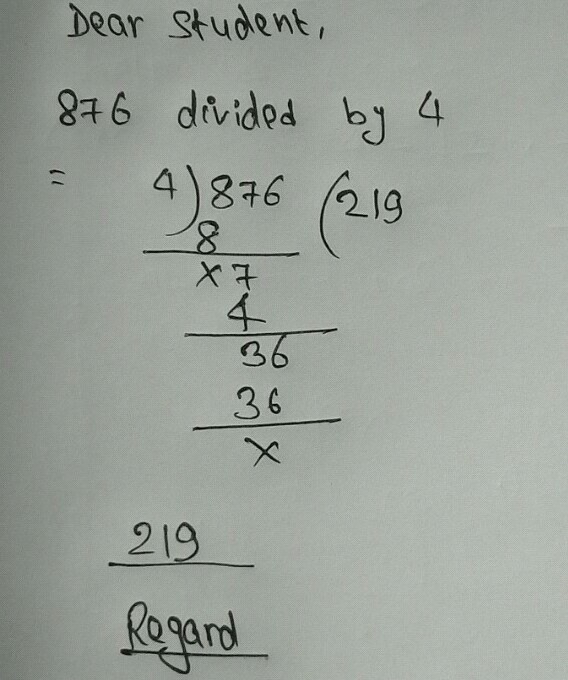 Dear Student,
876 divided by 4
= 4)876(219
8
x7
4
36
36
x
219
Regard